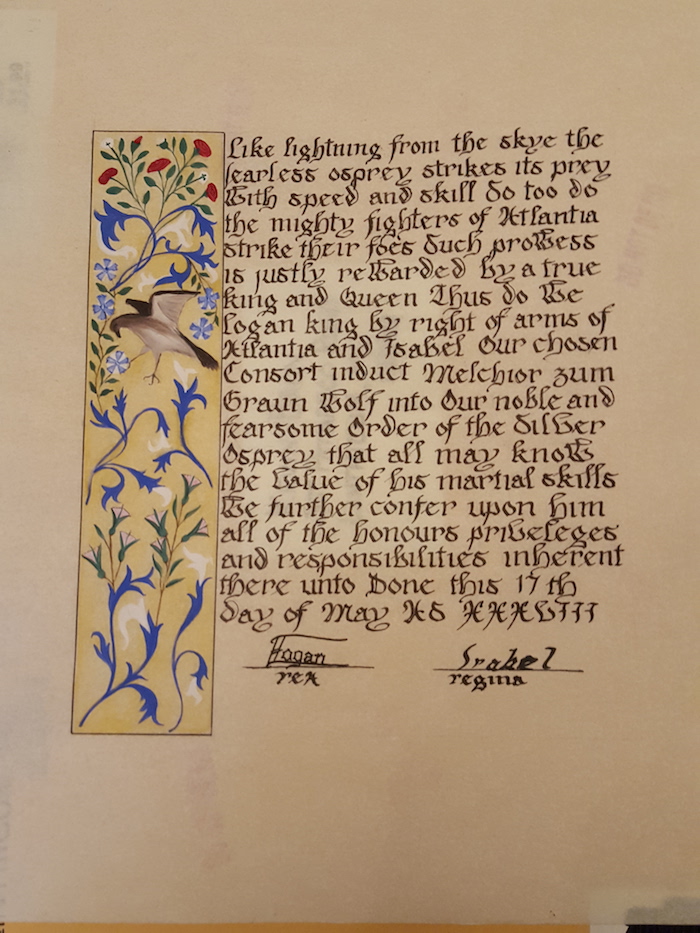 Like lightning from the skye the
fearless osprey strikes its prey
With speed and skill So too do
the mighty fighters of Atlantia
strike their foes Such prowess
is justly rewarded by a true
king and Queen Thus do We
Logan king by right of arms of
Atlantia and Isabel Our chosen
Consort induct Melchior zum
Graun Wolf into Our noble and
fearsome Order of the Silver
Osprey that all may know
the value of his martial skills
We further confer upon him
all of the honours priveleges
and responsibilities inherent
there unto Done this 17 th
day of May AS XXXVIII
Logan
Isabel
rex
regina